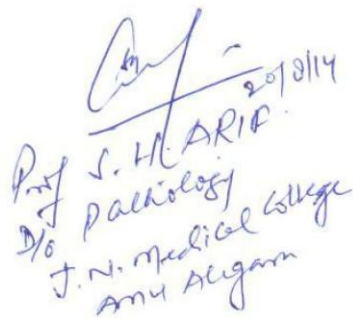 20/8/14
Prof S. H. ARIF.
D/o Pathology
J. N. Medical College
AMU Aligarh